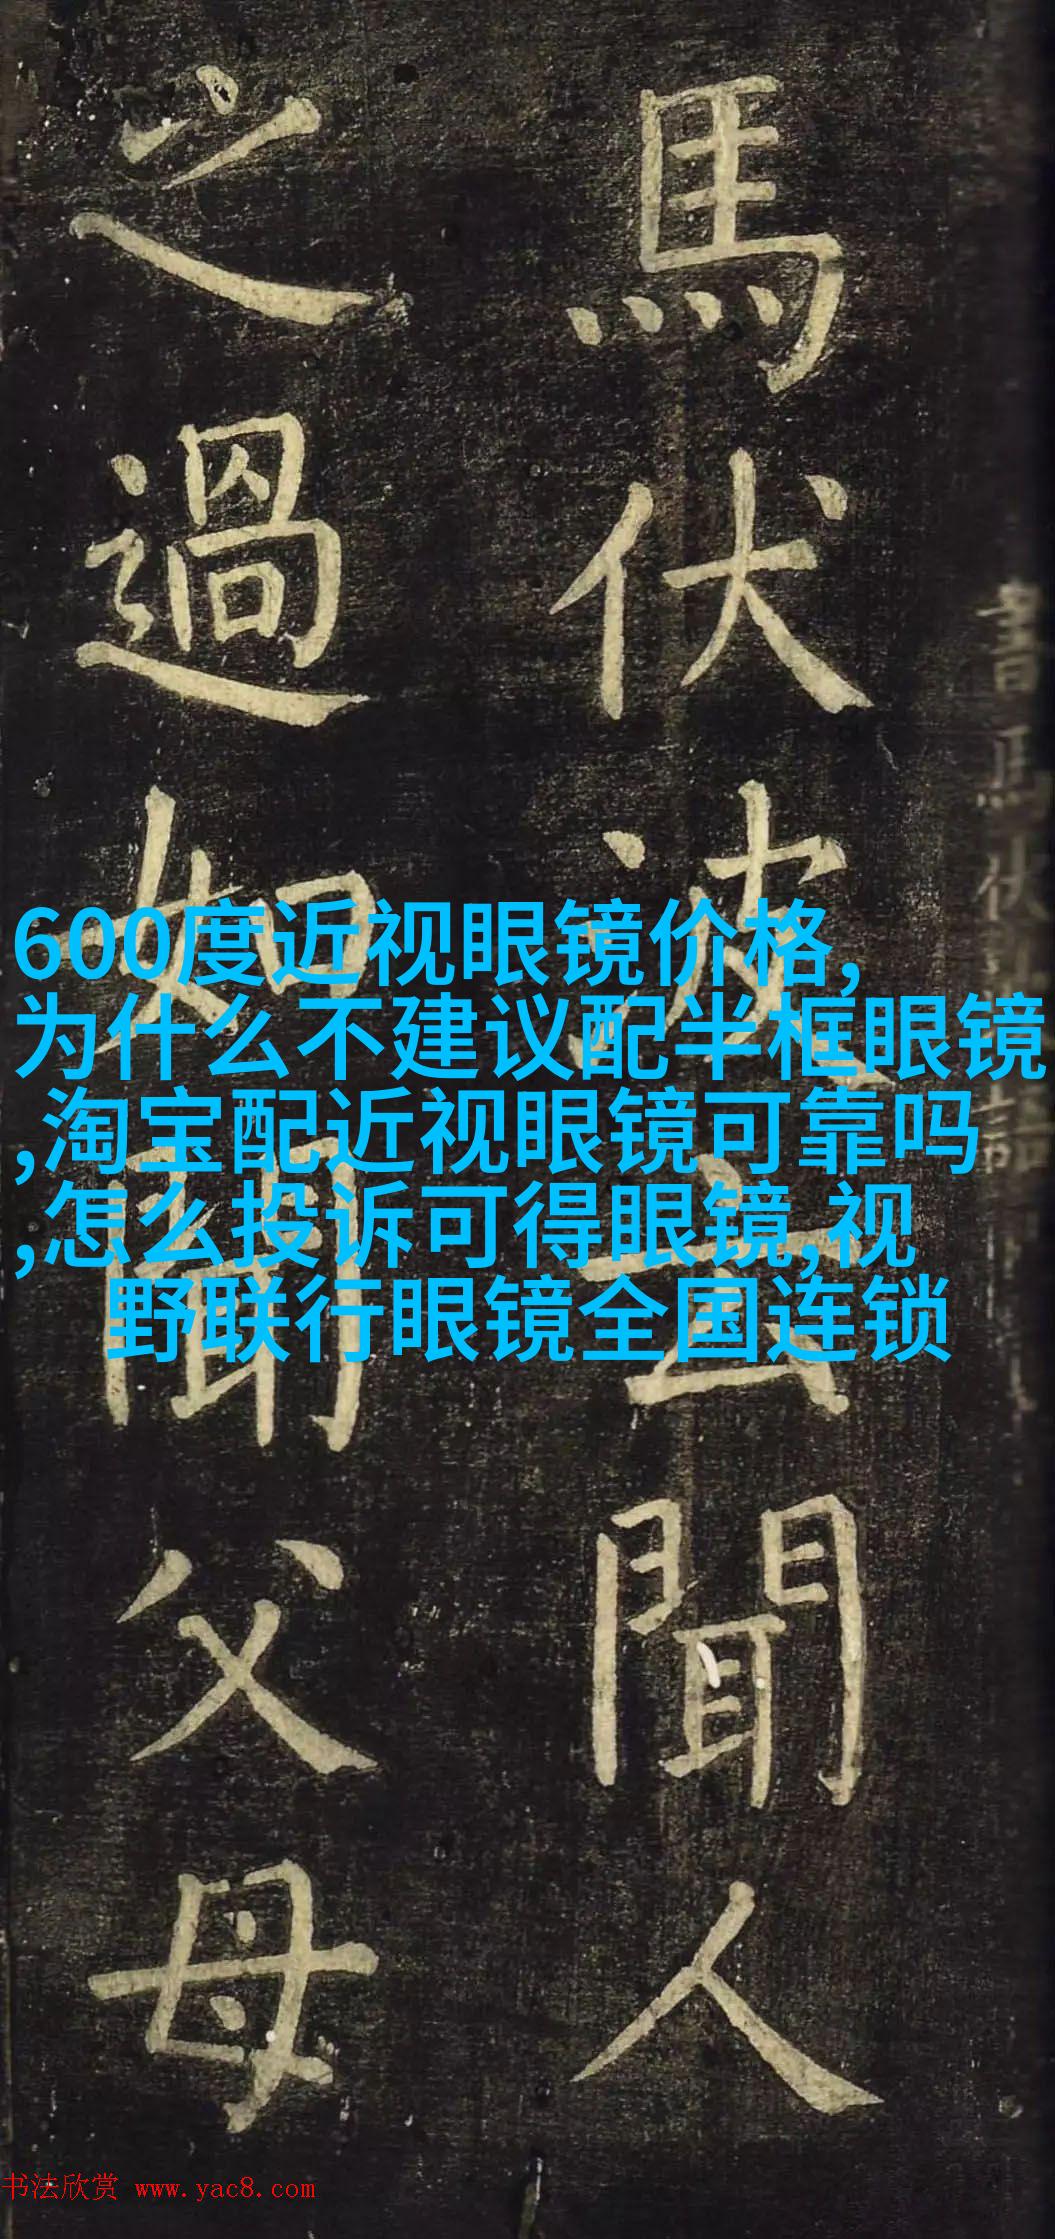 書馬伏
馬伏波云聞人
之過如聞父母
600度近视眼镜价格,
为什么不建议配半框眼镜
,淘宝配近视眼镜可靠吗
,怎么投诉可得眼镜,视
野联行眼镜全国连锁
书法欣赏 www.yac8.com